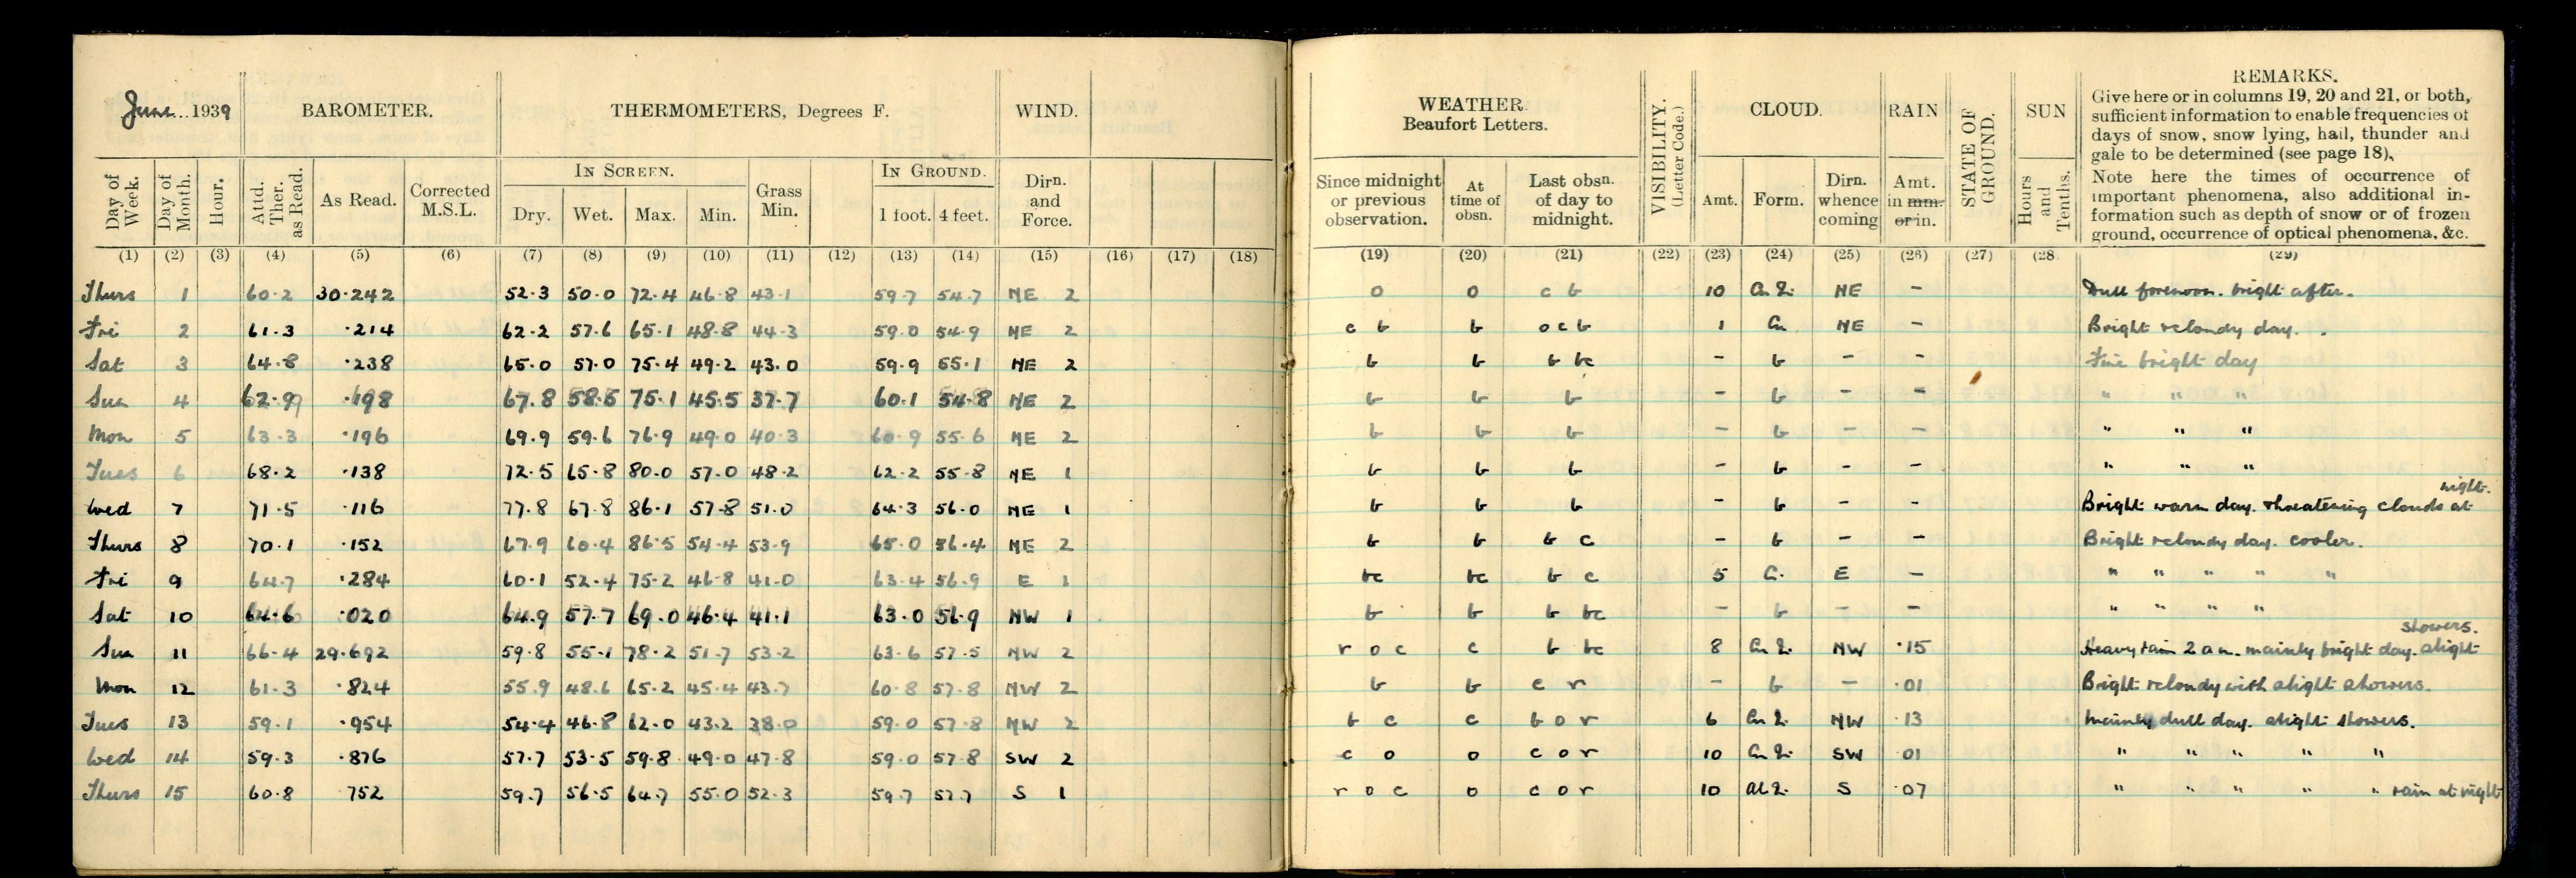 June 1939 BAROMETER. THERMOMETERS, Degrees F. WIND.
Day of Week. Day of Month. Hour. Attd. Ther. as Read. As Read. Corrected M.S.L. IN SCREEN. Dry. Wet. Max. Min. Grass Min. IN GROUND. 1 foot. 4 feet. Dirn. and Force.
(1) (2) (3) (4) (5) (6) (7) (8) (9) (10) (11) (12) (13) (14) (15) (16) (17) (18)
Thurs 1 60.2 30.242 52.3 50.0 72.4 46.8 43.1 59.7 54.7 NE 2
Fri 2 61.3 .214 62.2 57.6 65.1 48.8 44.3 59.0 54.9 NE 2
Sat 3 64.8 .238 65.0 57.0 75.4 49.2 43.0 59.9 55.1 NE 2
Sun 4 62.9 .198 67.8 58.5 75.1 45.5 37.7 60.1 54.8 NE 2
Mon 5 63.3 .196 69.9 59.6 76.9 49.0 40.3 60.9 55.6 NE 2
Tues 6 68.2 .138 72.5 65.8 80.0 57.0 48.2 62.2 55.8 NE 1
Wed 7 71.5 .116 77.8 67.8 86.1 57.8 51.0 64.3 56.0 NE 1
Thurs 8 70.1 .152 67.9 60.4 86.5 54.4 53.9 65.0 56.4 NE 2
Fri 9 64.7 .284 60.1 52.4 75.2 46.8 41.0 63.4 56.9 E 1
Sat 10 64.6 .020 64.9 57.7 69.0 46.4 41.1 63.0 56.9 NW 1
Sun 11 66.4 29.692 59.8 55.1 78.2 51.7 53.2 63.6 57.5 NW 2
Mon 12 61.3 .824 55.9 48.6 65.2 45.4 43.7 60.8 57.8 NW 2
Tues 13 59.1 .954 54.4 46.8 62.0 43.2 38.0 59.0 57.8 NW 2
Wed 14 59.3 .876 57.7 53.5 59.8 49.0 47.8 59.0 57.8 SW 2
Thurs 15 60.8 752 59.7 56.5 64.7 55.0 52.3 59.7 57.7 S 1
WEATHER. Beaufort Letters. VISIBILITY. (Letter Code.) CLOUD. RAIN STATE OF GROUND. SUN REMARKS.
Give here or in columns 19, 20 and 21, or both,
sufficient information to enable frequencies of
days of snow, snow lying, hail, thunder and
gale to be determined (see page 18).
Note here the times of occurrence of
important phenomena, also additional in-
formation such as depth of snow or of frozen
ground, occurrence of optical phenomena, &c.
Since midnight or previous observation. At time of obsn. Last obsn. of day to midnight. Amt. Form. Dirn. whence coming Amt. in mm. or in. Hours and Tenths.
(19) (20) (21) (22) (23) (24) (25) (26) (27) (28 (29)
o o c b 10 NE - Dull forenoon. bright after.
c b b o c b 1 Cu NE - Bright & cloudy day.
b b b bc - b - - Fine bright day
b b b - b - - " " "
b b b - b - - " " "
b b b - b - - " " "
b b b - b - - Bright warm day. threatening clouds at night.
b b b c - b - - Bright & cloudy day. cooler.
bc bc b c 5 E - " " " " "
b b b bc - b - - " " " "
r o c c b bc 8 NW .15 Heavy rain 2 am. mainly bright day. slight showers.
b b c r - b - .01 Bright & cloudy with slight showers.
b c c b o r 6 NW .13 mainly dull day. slight showers.
c o o c o r 10 SW 01 " " " " "
r o c o c o r 10 S .07 " " " " " rain at night